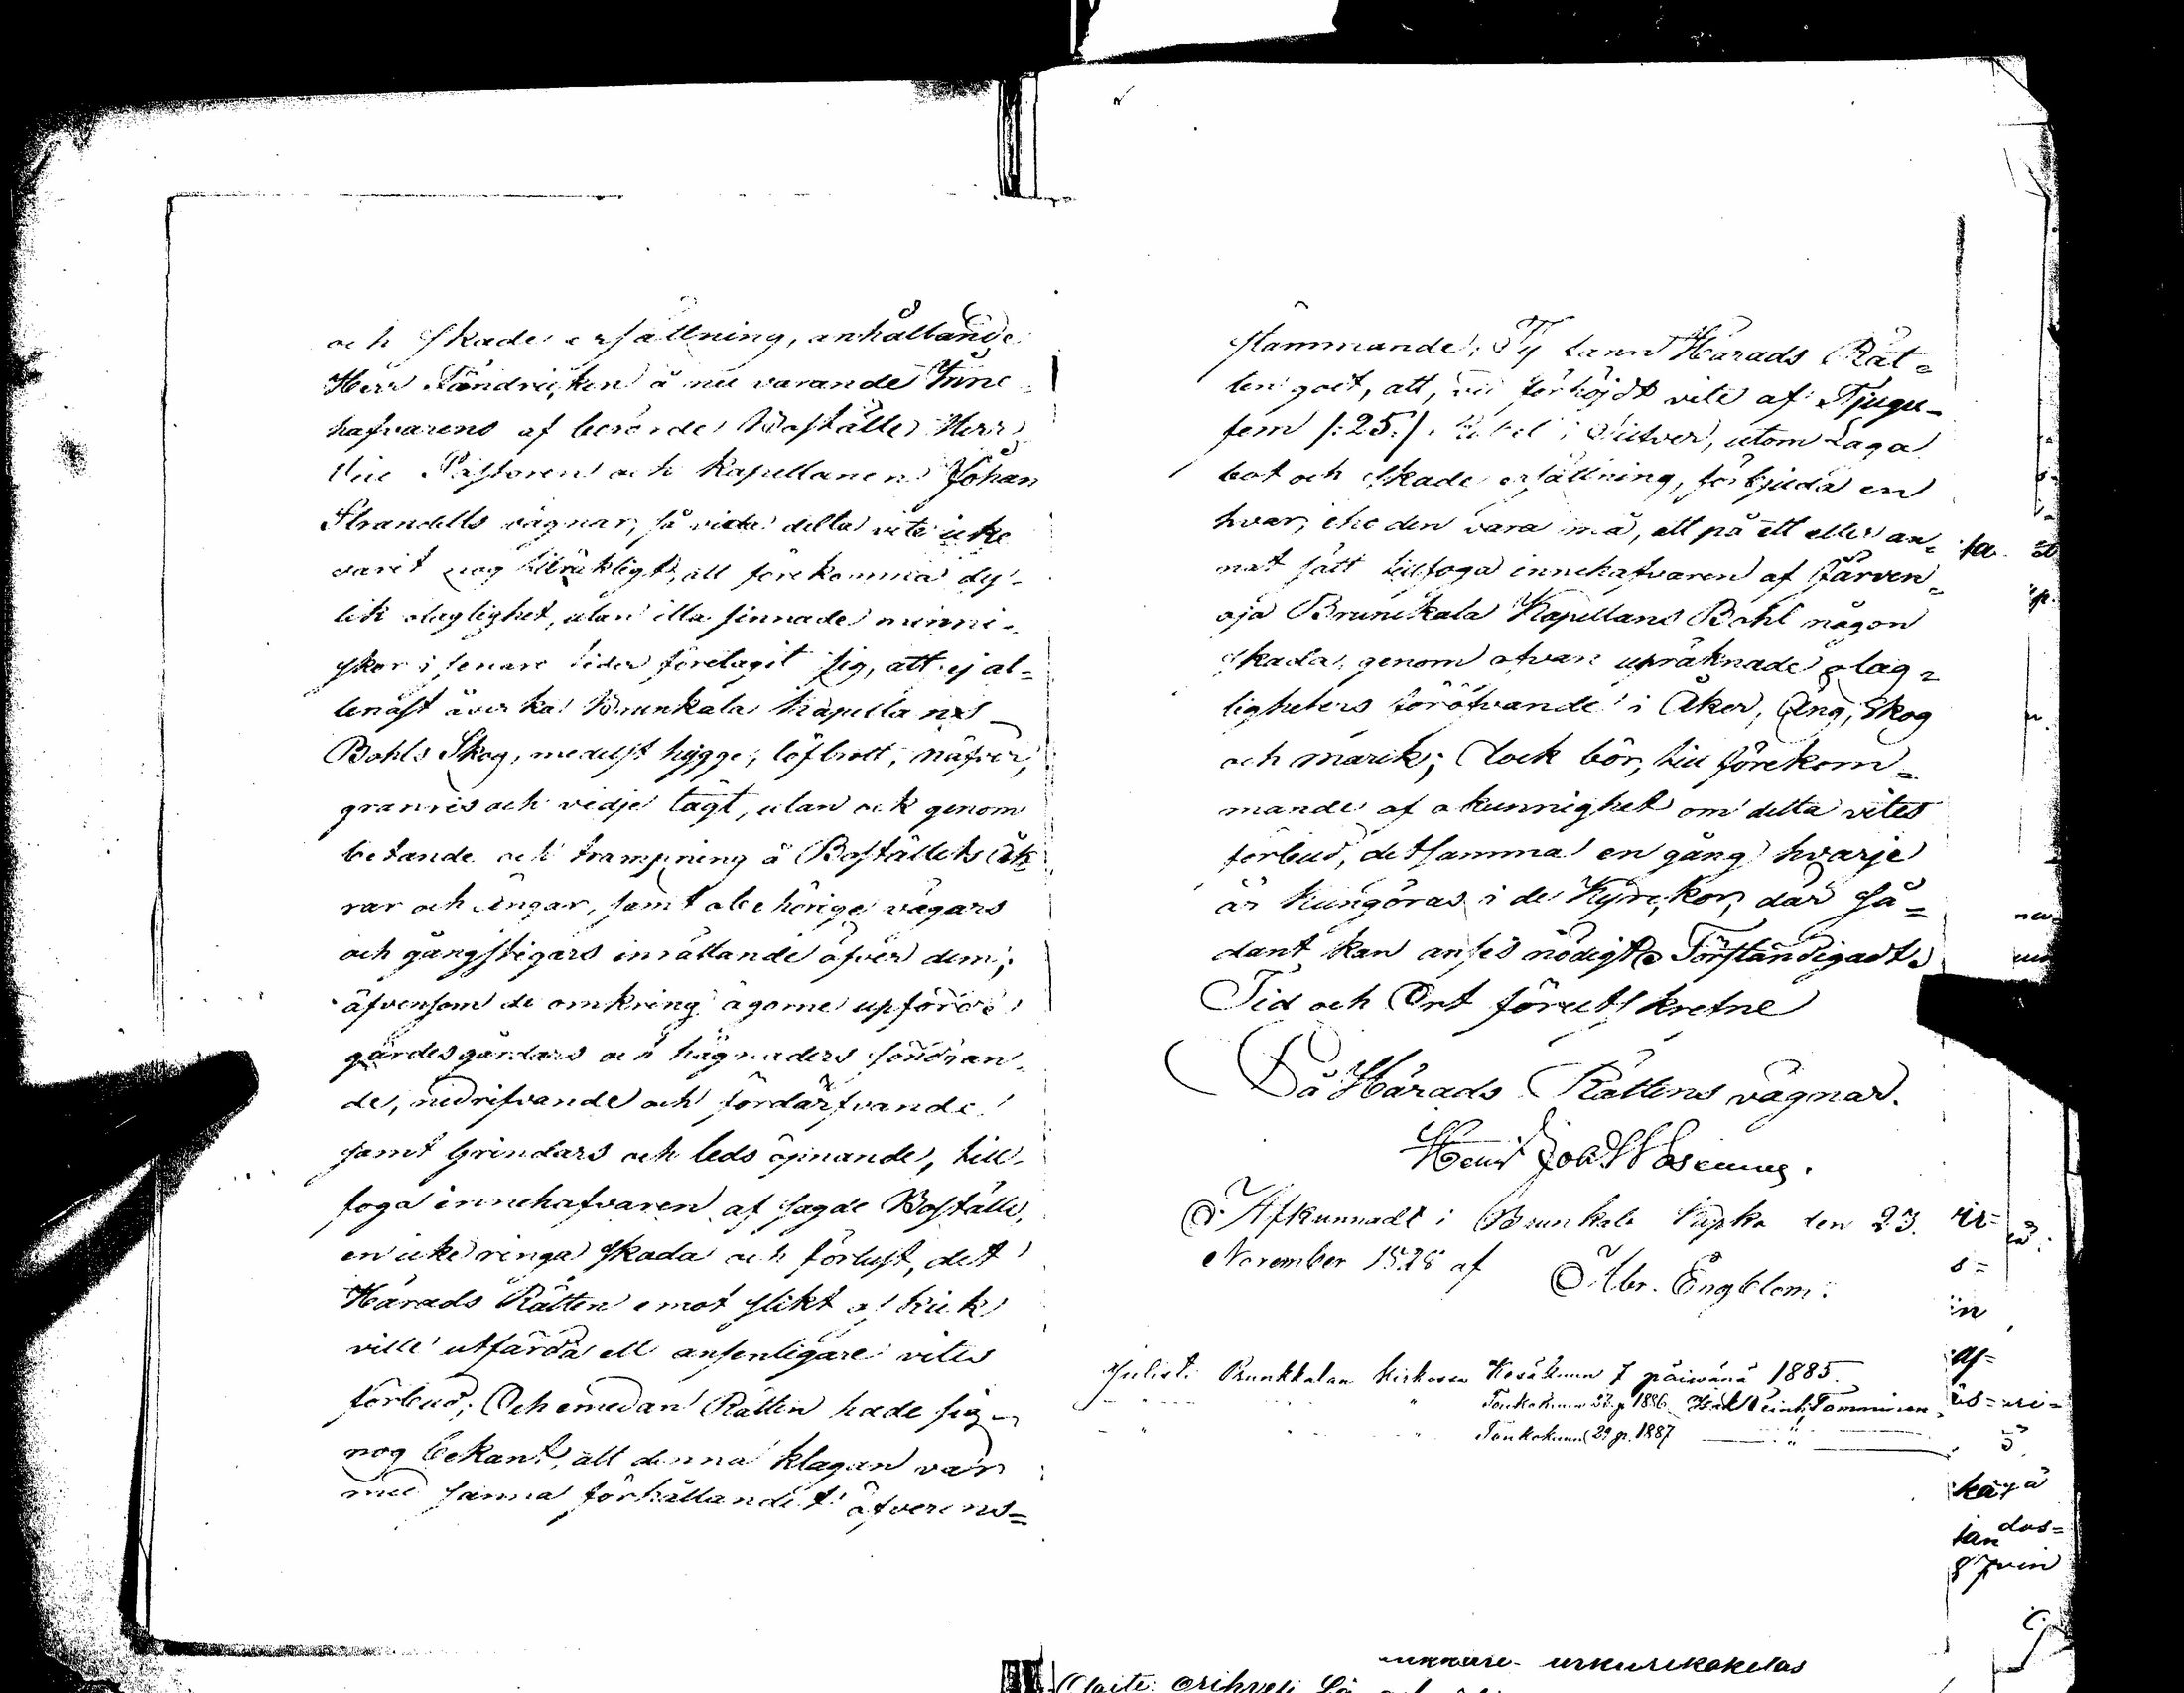 och skade ersättning, anhållande
Herr Fändricken å nu varande Inne-
hafvarens af berörde Boställe Herr
Vice Pastoren och Kapellanen Johan
Strandells vägnar, så vida detta vite icke
varit nog tillräkligt, att förekomma dy-
lik olaglighet, utan illa sinnade menni-
skor i senare tider företagit sig, att ej al-
lenast åverka Brunkala Kapellans
Bohls Skog, medelst hygge, löfbrott, näfver,
granris och vidje tägt, utan ock genom
betande och trampning å Boställets Åk-
rar och Ängar, samt obehörige vägars
och gångstigars inrättande öfver dem;
äfvensom de omkring ägorne upförde
gärdesgårdars och hägnaders söndran-
de, nedrifvande och fördärfvande
samt Grindars och leds öpnande, till-
foga innehafvaren af sagde Boställe,
en icke ringa skada och förlust, det
Härads Rätten emot slikt ofskick
ville utfärda ett ansenligare vites
förbud; Och emedan Rätten hade sig
nog bekant, att denna klagan var
med sanna förhållandet öfverens=
stämmande; Ty fann Härads Rät=
ten godt, att, vid förhöjdt vite af Tjugu-
fem /:25:/ Rubel i Silfver, utom Laga
bot och skade ersättning, förbjuda en
hvar, eho den vara må, att på ett eller an=
nat sätt tillfoga innehafvaren af Järven=
oja Brunkala Kapellans Bohl någon
skada, genom ofvan upräknade olag=
ligheters föröfvande i Åker, Äng, Skog
och marck; Dock bör, till förekom=
mande af okunnighet om detta vites
förbud, detsamma en gång hvarje
år kungöras i de Kyrckor, där så=
dant kan anses nödigt. Förständigadt.
Tid och Ort förutskrefne
På Härads Rättens vägnar.
Afkunnadt i Brunkala Kyrka den 23.
November 1828 af Abr. Engblom.
Julisti Prunkkalan kirkossa Kesäkuun 7 päiwänä 1885.
" " Toukokuun 27 p. 1886 Tamminen
" " Toukokuun 29 p. 1887 "